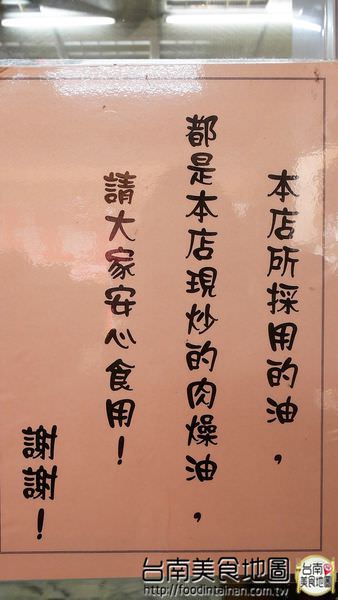 本店所採用的油，
都是本店現炒的肉燥油，
請大家安心食用！
謝謝！
台南美食地圖
http://www.foodintainan.com.tw
台南
美食地圖